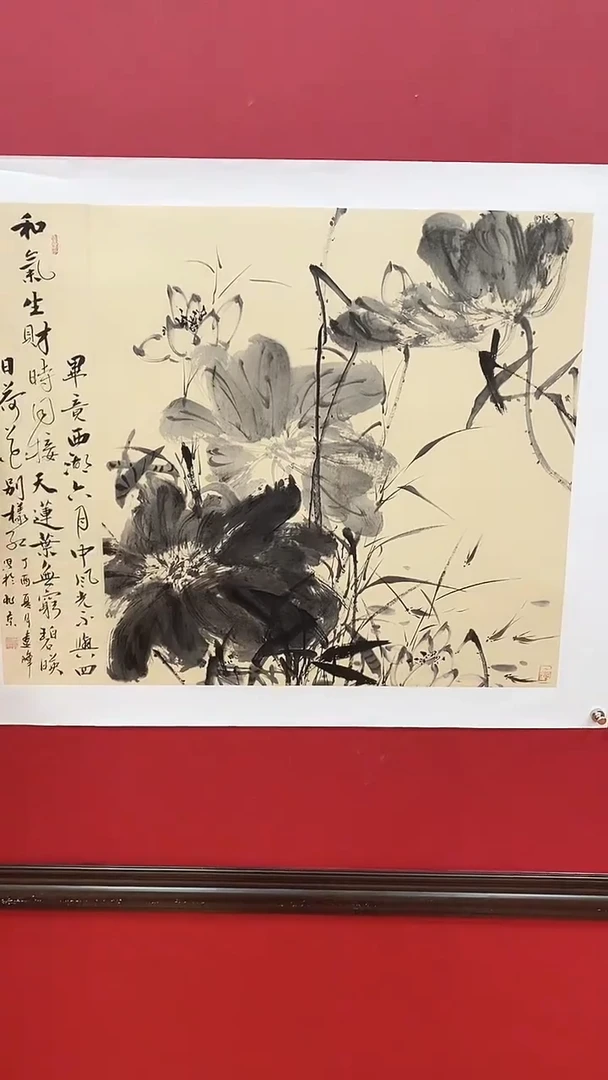 和氣生財
畢竟西湖六月中风光不與四
時同接天蓮葉無窮碧映
日荷花別樣紅
丁酉夏月建峰
寫於北京